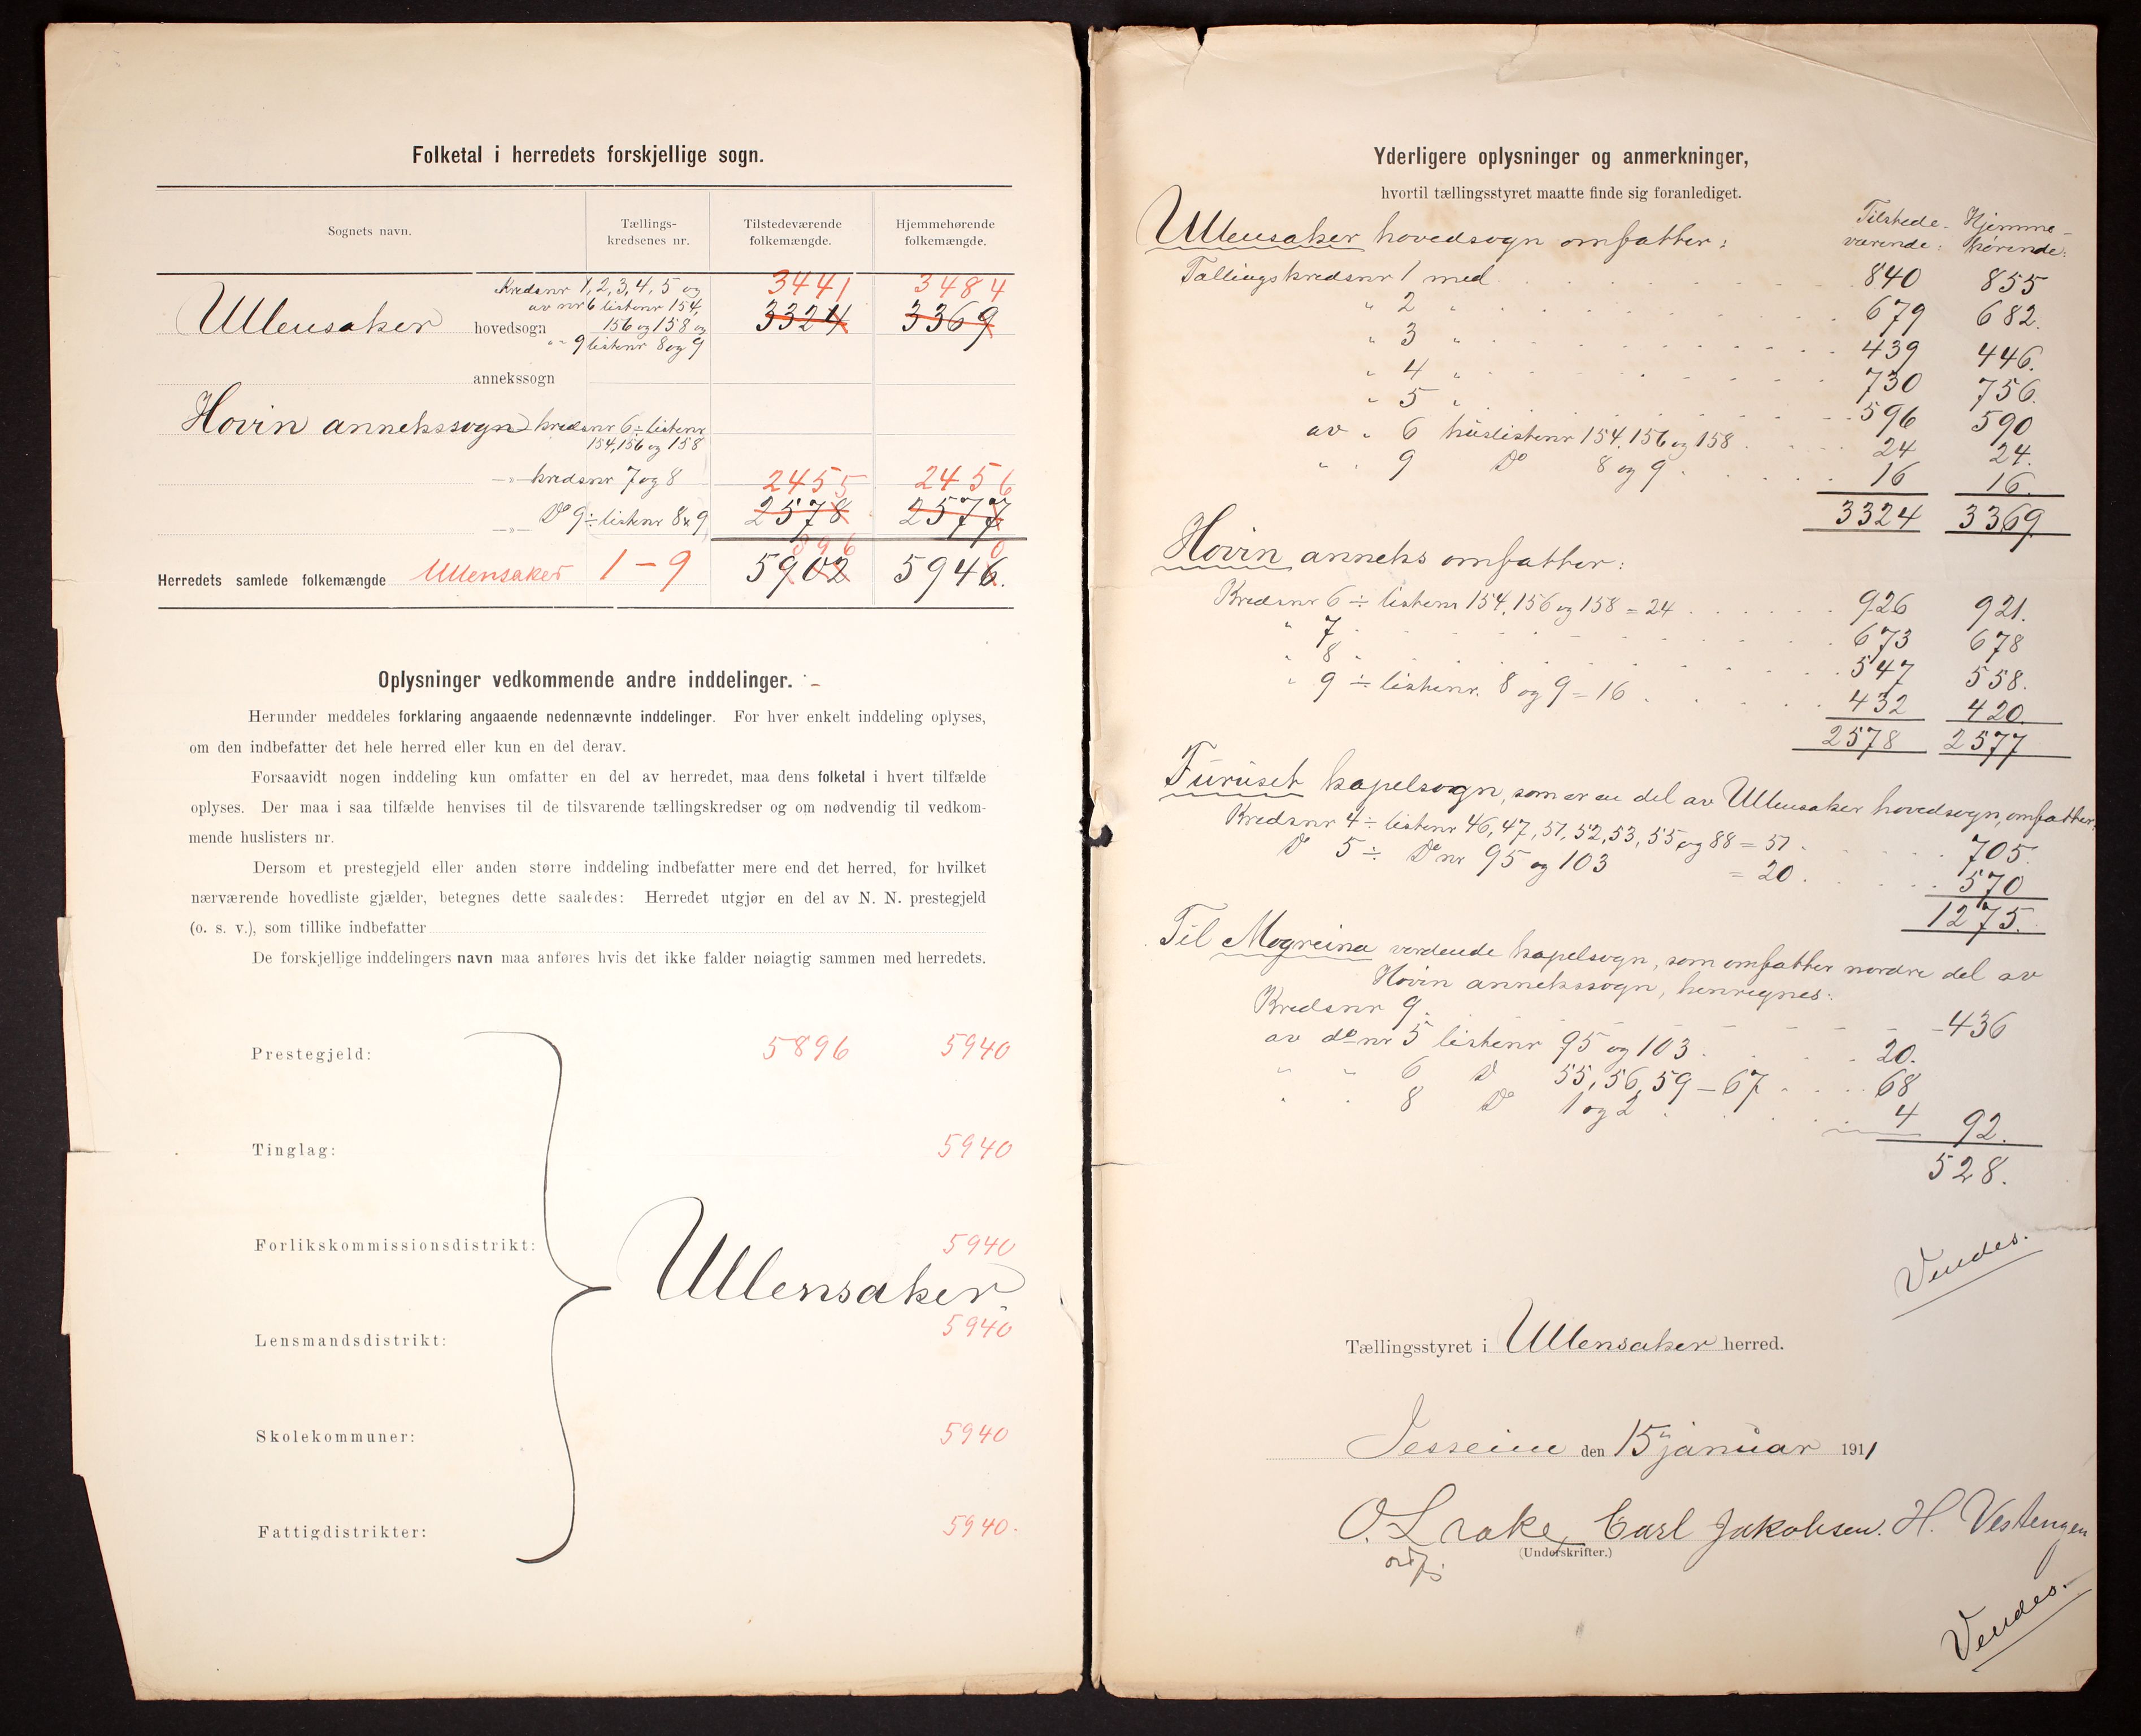 Folketal i herredets forskjellige sogn.
Sognets navn.
Tællings-
kredsenes nr.
Tilstedeværende
folkemængde.
Hjemmehørende
folkemængde.
Kredsnr 1, 2, 3, 4, 5 og
av nr 6 listenr 154,
3441 3484
Ullensaker hovedsogn 156 og 158 og 3324 3369
" " 9 listenr 8 og 9
annekssogn
Hovin annekssogn kredsnr 6 ÷ listenr
154, 156 og 158
-"- kredsnr 7 og 8 2455 2456
-"- Do 9 ÷ listenr 8 & 9 2578 2577
896 0
Herredets samlede folkemængde Ullensaker 1 - 9 5902 5946.
Oplysninger vedkommende andre inddelinger.
Herunder meddeles forklaring angaaende nedennævnte inddelinger. For hver enkelt inddeling oplyses,
om den indbefatter det hele herred eller kun en del derav.
Forsaavidt nogen inddeling kun omfatter en del av herredet, maa dens folketal i hvert tilfælde
oplyses. Der maa i saa tilfælde henvises til de tilsvarende tællingskredser og om nødvendig til vedkom-
mende huslisters nr.
Dersom et prestegjeld eller anden større inddeling indbefatter mere end det herred, for hvilket
nærværende hovedliste gjælder, betegnes dette saaledes: Herredet utgjør en del av N. N. prestegjeld
(o. s. v.), som tillike indbefatter
De forskjellige inddelingers navn maa anføres hvis det ikke falder nøiagtig sammen med herredets.
Prestegjeld: 5896 5940
Tinglag: 5940
Forlikskommissionsdistrikt: 5940
Ullensaker
Lensmandsdistrikt: 5940
Skolekommuner: 5940
Fattigdistrikter: 5940.
Yderligere oplysninger og anmerkninger,
hvortil tællingsstyret maatte finde sig foranlediget.
Tilstede- Hjemme-
værende: hørende:
Ullensaker hovedsogn omfatter:
Tællingskredsnr 1 med 840 855
" 2 " 679 682.
" 3 " 439 446.
" 4 " 730 756.
" 5 " 596 590
av " 6 huslistenr 154, 156 og 158 24 24.
" " 9 Do 8 og 9 16 16.
3324 3369.
Hovin anneks omfatter:
Kredsnr 6 ÷ listenr 154, 156 og 158 = 24 926 921.
" 7 673 678
" 8 547 558.
" 9 ÷ listenr. 8 og 9 = 16 432 420.
2578 2577
Furuset kapelsogn, som er en del av Ullensaker hovedsogn, omfatter:
Kredsnr 4 ÷ listenr 46, 47, 51, 52, 53, 55 og 88 = 51 705.
Do 5 ÷ Do nr 95 og 103 = 20 570
1275.
Til Mogreina vordende kapelsogn, som omfatter nordre del av
Hovin annekssogn, henregnes:
Kredsnr 9 436
av do nr 5 listenr 95 og 103 20.
" " 6 Do 55, 56, 59 - 67 68
" " 8 Do 1 og 2 4 92.
528.
Vendes.
Tællingsstyret i Ullensaker herred.
Jesseim den 15 januar 1911
O. Lrake Carl Jakobsen. H. Vestengen
ordf.
(Underskrifter.)
Vendes.